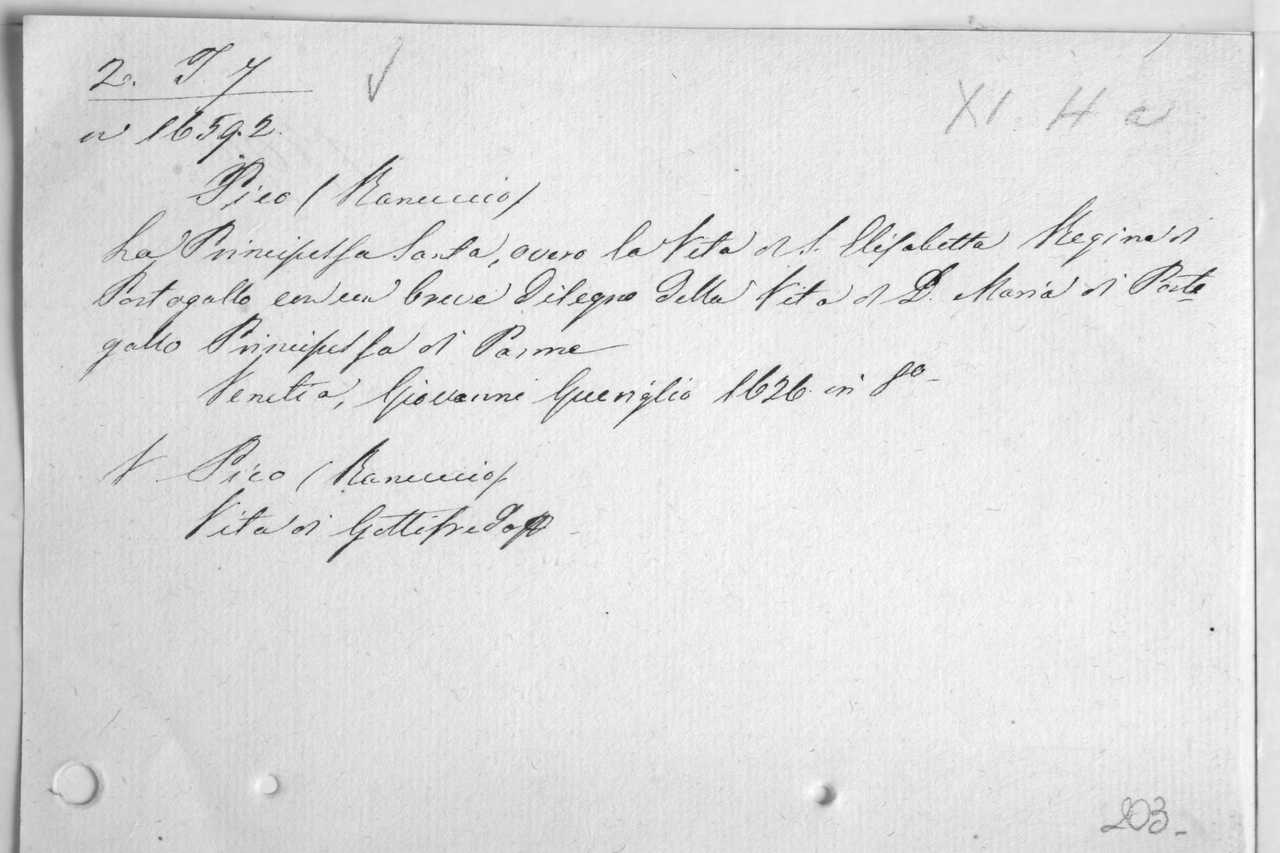 2. T. 7
XI. H a
n 16592.
Pico (Ranuccio)
La Principessa Santa, overo la Vita di S. Elisabetta Regina di
Portogallo con un breve disegno della Vita di D. Maria di Porto
gallo Principessa di Parma
Venetia, Giovanni Gueriglio 1626. in 8o
N Pico (Ranuccio)
Vita di Gottifredo
203